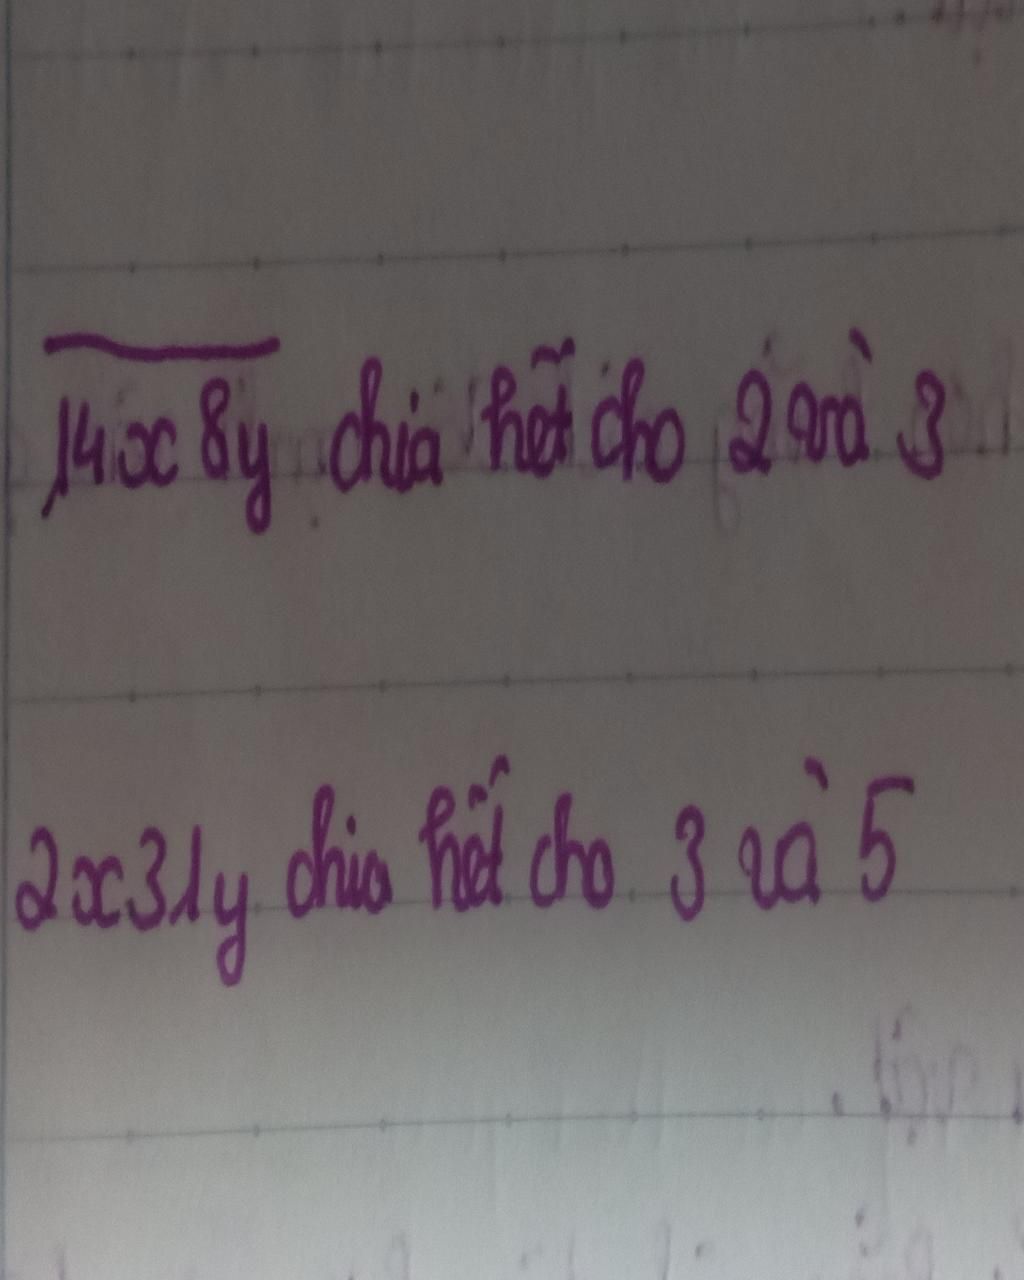 14x8y chia hết cho 2 và 3
2x31y chia hết cho 3 và 5